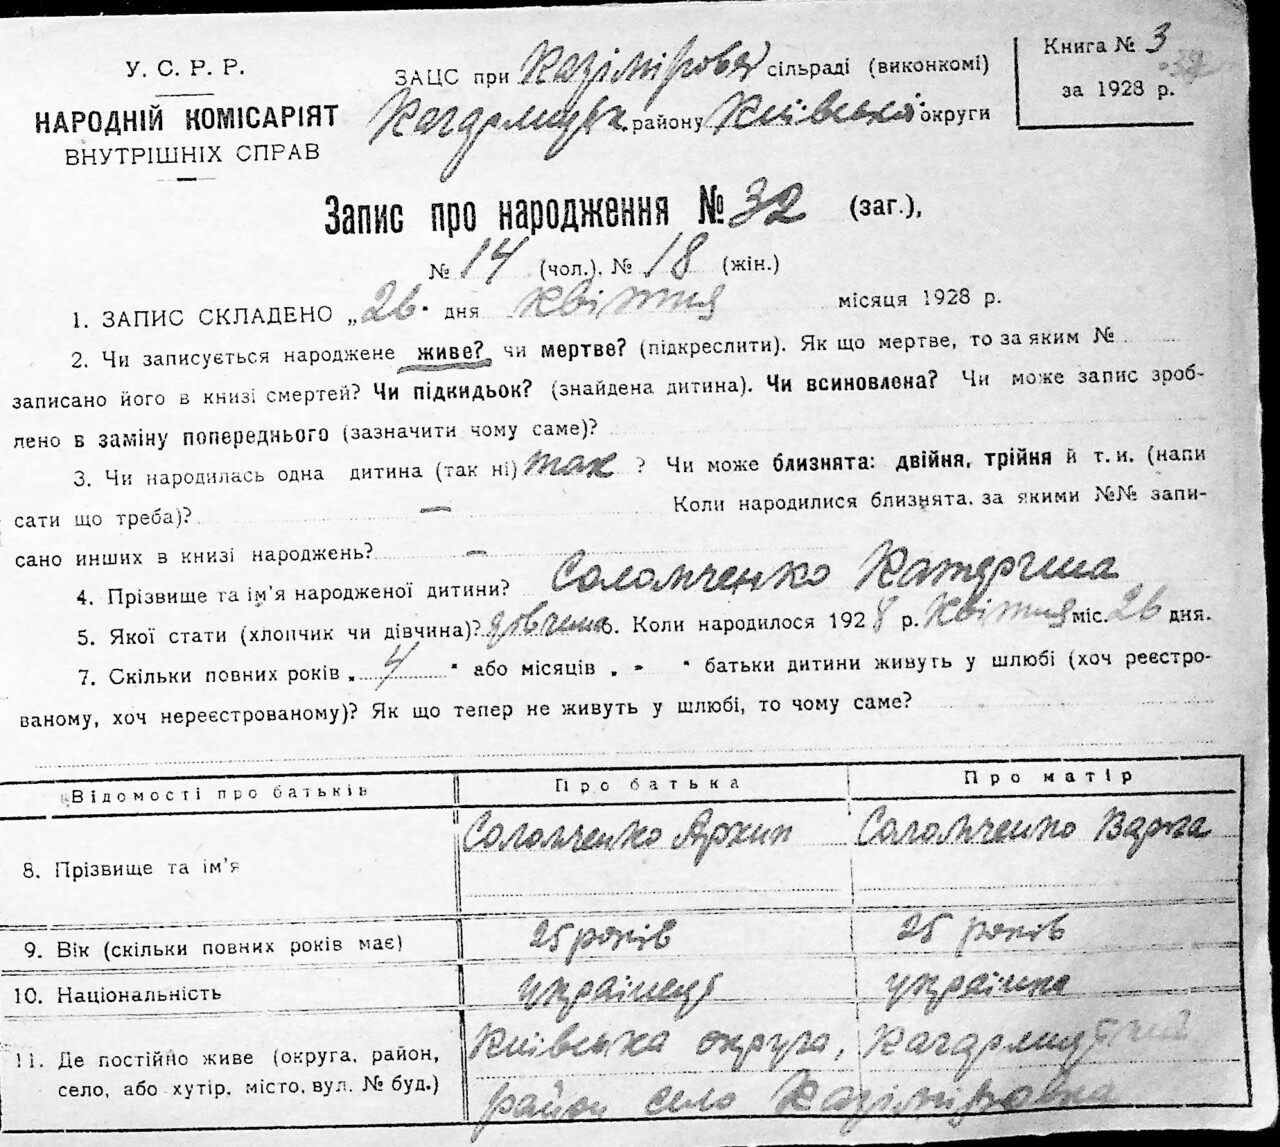 У. С. Р. Р.
НАРОДНІЙ КОМІСАРІЯТ
ВНУТРІШНІХ СПРАВ
ЗАЦС при Казіміровск сільраді (виконкомі)
Кагарлицьк. району Київської округи
Книга № 3
за 1928 р.
Запис про народження № 32 (заг.),
№ 14 (чол.), № 18 (жін.)
1. ЗАПИС СКЛАДЕНО „26" дня квітня місяця 1928 р.
2. Чи записується народжене живе? чи мертве? (підкреслити). Як що мертве, то за яким №
записано його в книзі смертей? Чи підкидьок? (знайдена дитина). Чи всиновлена? Чи може запис зроб-
лено в заміну попереднього (зазначити чому саме)?
3. Чи народилась одна дитина (так ні) так ? Чи може близнята: двійня, трійня й т. и. (напи
сати що треба)? — Коли народилися близнята, за якими №№ запи-
сано инших в книзі народжень? —
4. Прізвище та ім'я народженої дитини? Соломченко Катерина
5. Якої стати (хлопчик чи дівчина)? дівчина 6. Коли народилося 1928 р. Квітня міс. 26 дня.
7. Скільки повних років „ 4 " або місяців „ - " батьки дитини живуть у шлюбі (хоч реєстро-
ваному, хоч нереєстрованому)? Як що тепер не живуть у шлюбі, то чому саме?
Відомості про батьків Про батька Про матір
8. Прізвище та ім'я Соломченко Архип Соломченко Варка
9. Вік (скільки повних років має) 25 років 25 років
10. Національність українець українка
11. Де постійно живе (округа, район, Київська округа, Кагарлицький
село, або хутір, місто, вул. № буд.) район село Казіміровка